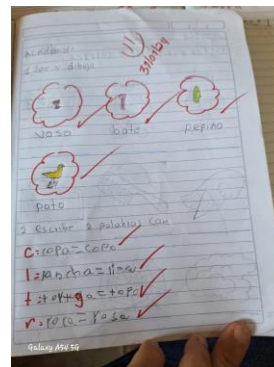 Actividad:
1 lee y dibuja
31/01/24
vaso bate pepino
pato
2 Escribe 2 palabras con
c: copa = copo
l: lancha =
t: tortuga = topo
r: rosa = rosa
Galaxy A54 5G